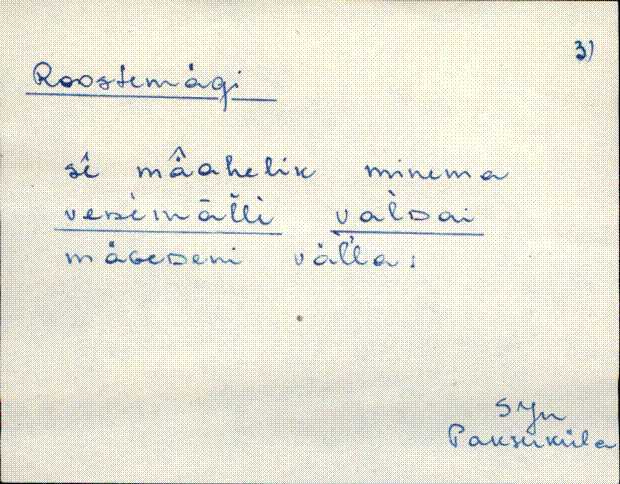 3)
Roostemägi
sê mâahelik minema
vesimätti valdai
mäGeDeni välla.
SJn
Paksuküla